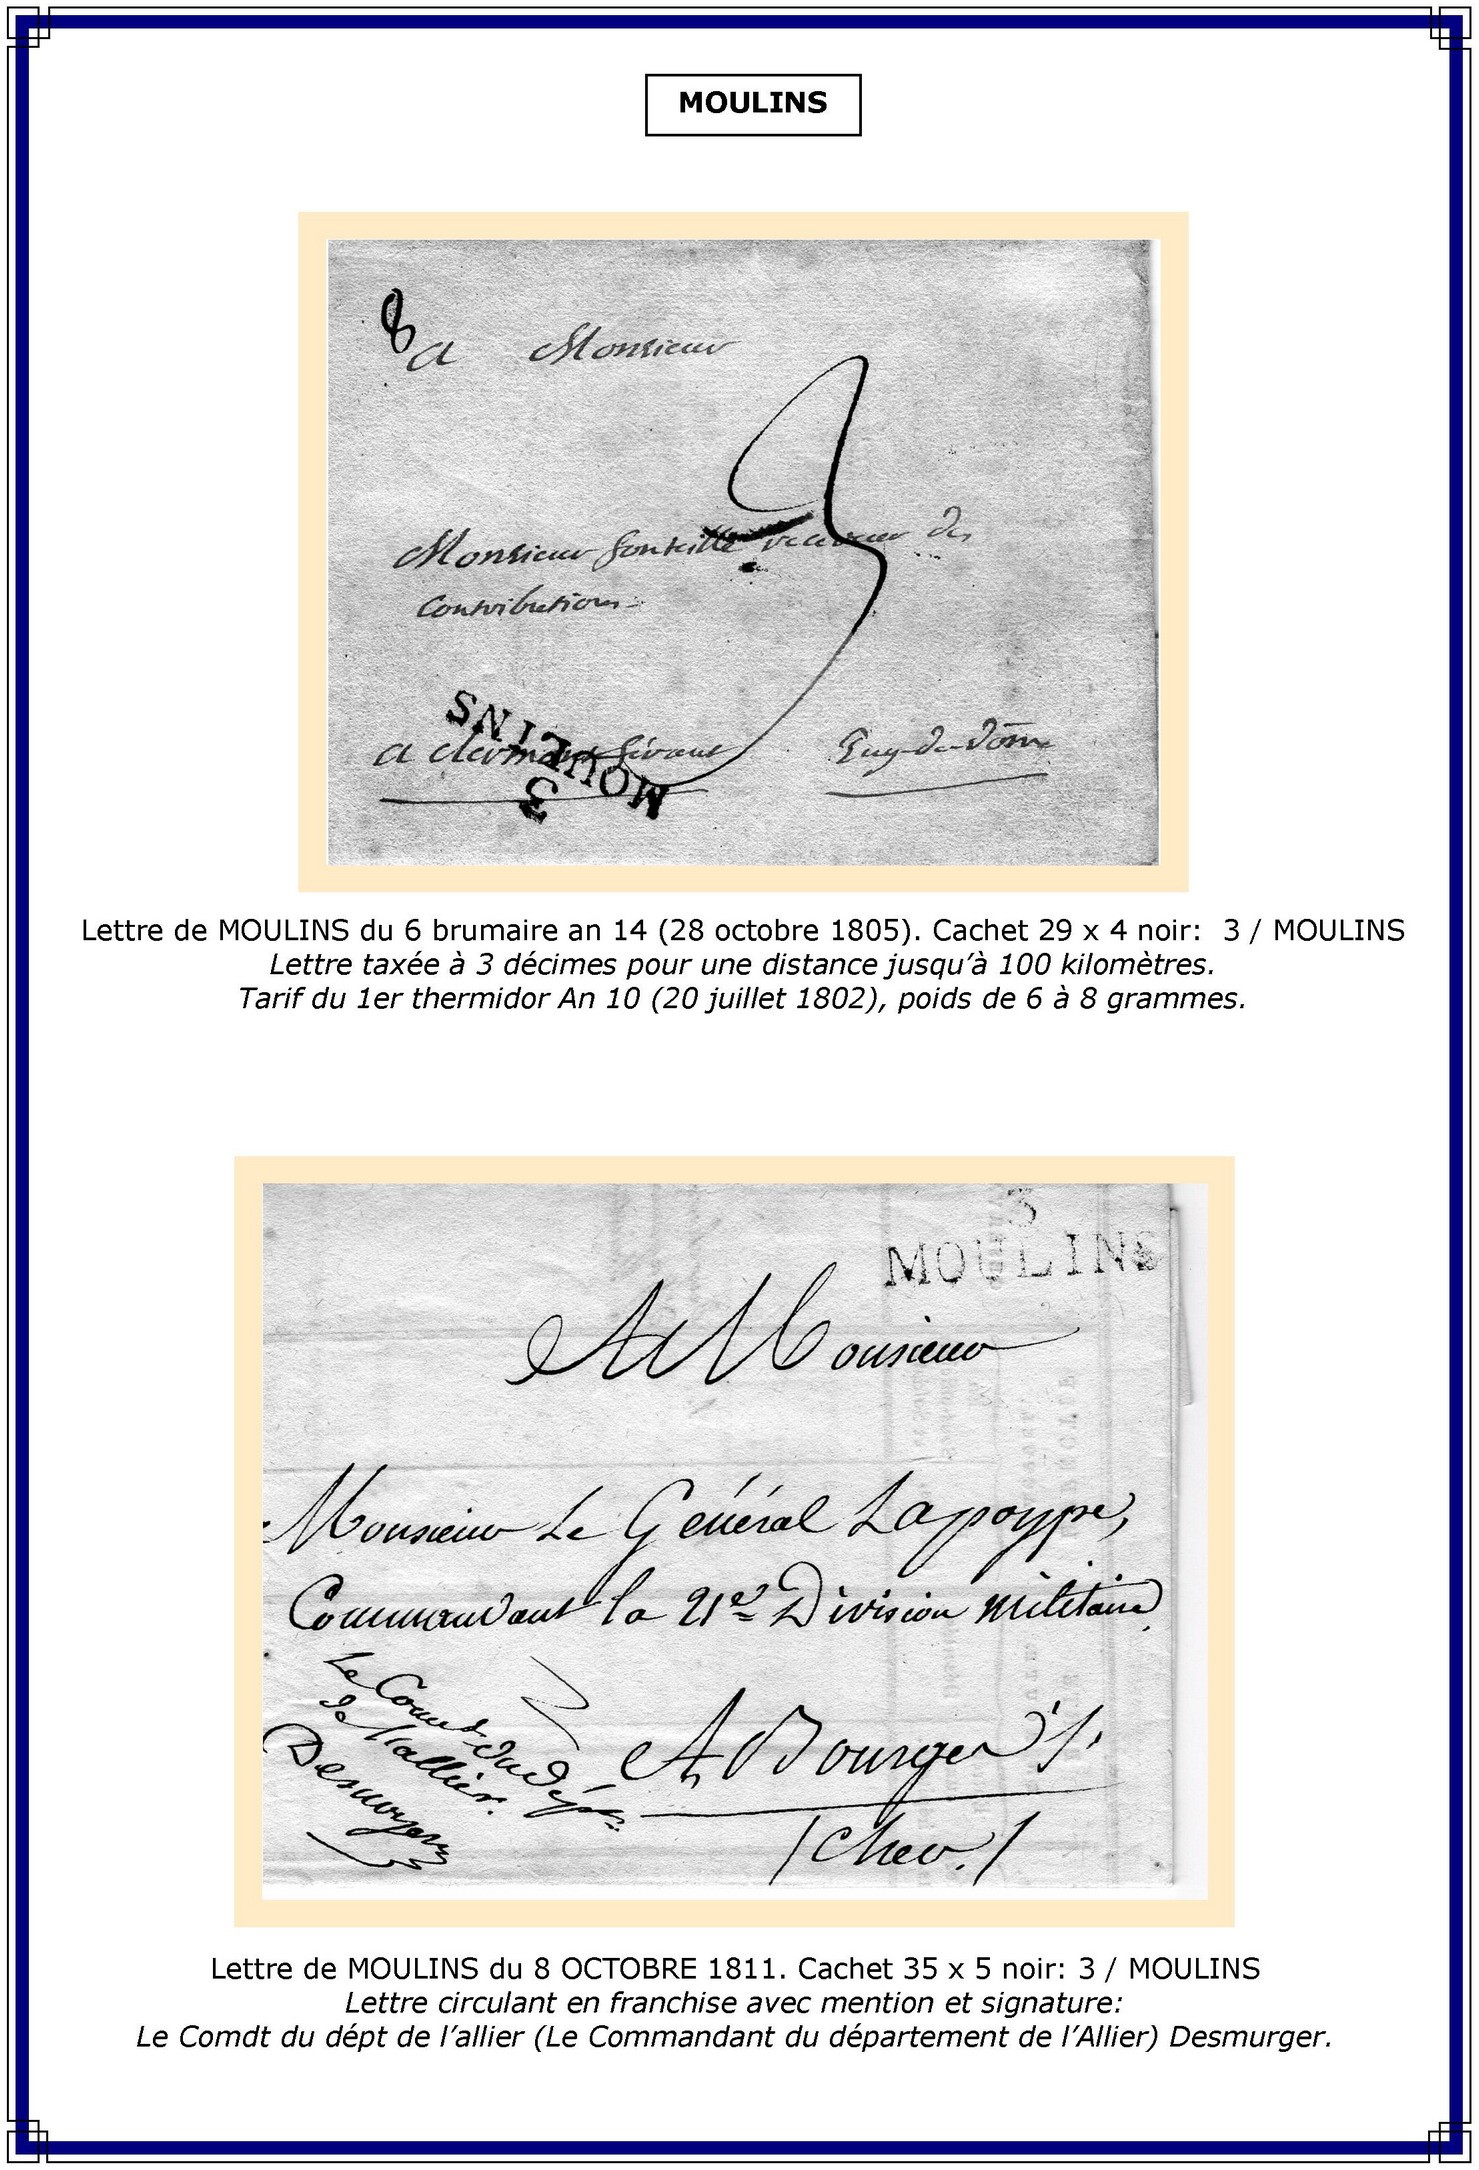 MOULINS
8
a Monsieur
3
Monsieur fonteille receveur des
Contributions
MOULINS
a clermont férant Puy-de-Dôme
3
Lettre de MOULINS du 6 brumaire an 14 (28 octobre 1805). Cachet 29 x 4 noir: 3 / MOULINS
Lettre taxée à 3 décimes pour une distance jusqu’à 100 kilomètres.
Tarif du 1er thermidor An 10 (20 juillet 1802), poids de 6 à 8 grammes.
3
MOULINS
A Monsieur
Monsieur Le Général Lapoype,
Commandant la 21e Division militaire
Le Comdt du dépt
de l'allier.
Desmurger
A Bourges.
/Cher./
Lettre de MOULINS du 8 OCTOBRE 1811. Cachet 35 x 5 noir: 3 / MOULINS
Lettre circulant en franchise avec mention et signature:
Le Comdt du dépt de l’allier (Le Commandant du département de l’Allier) Desmurger.